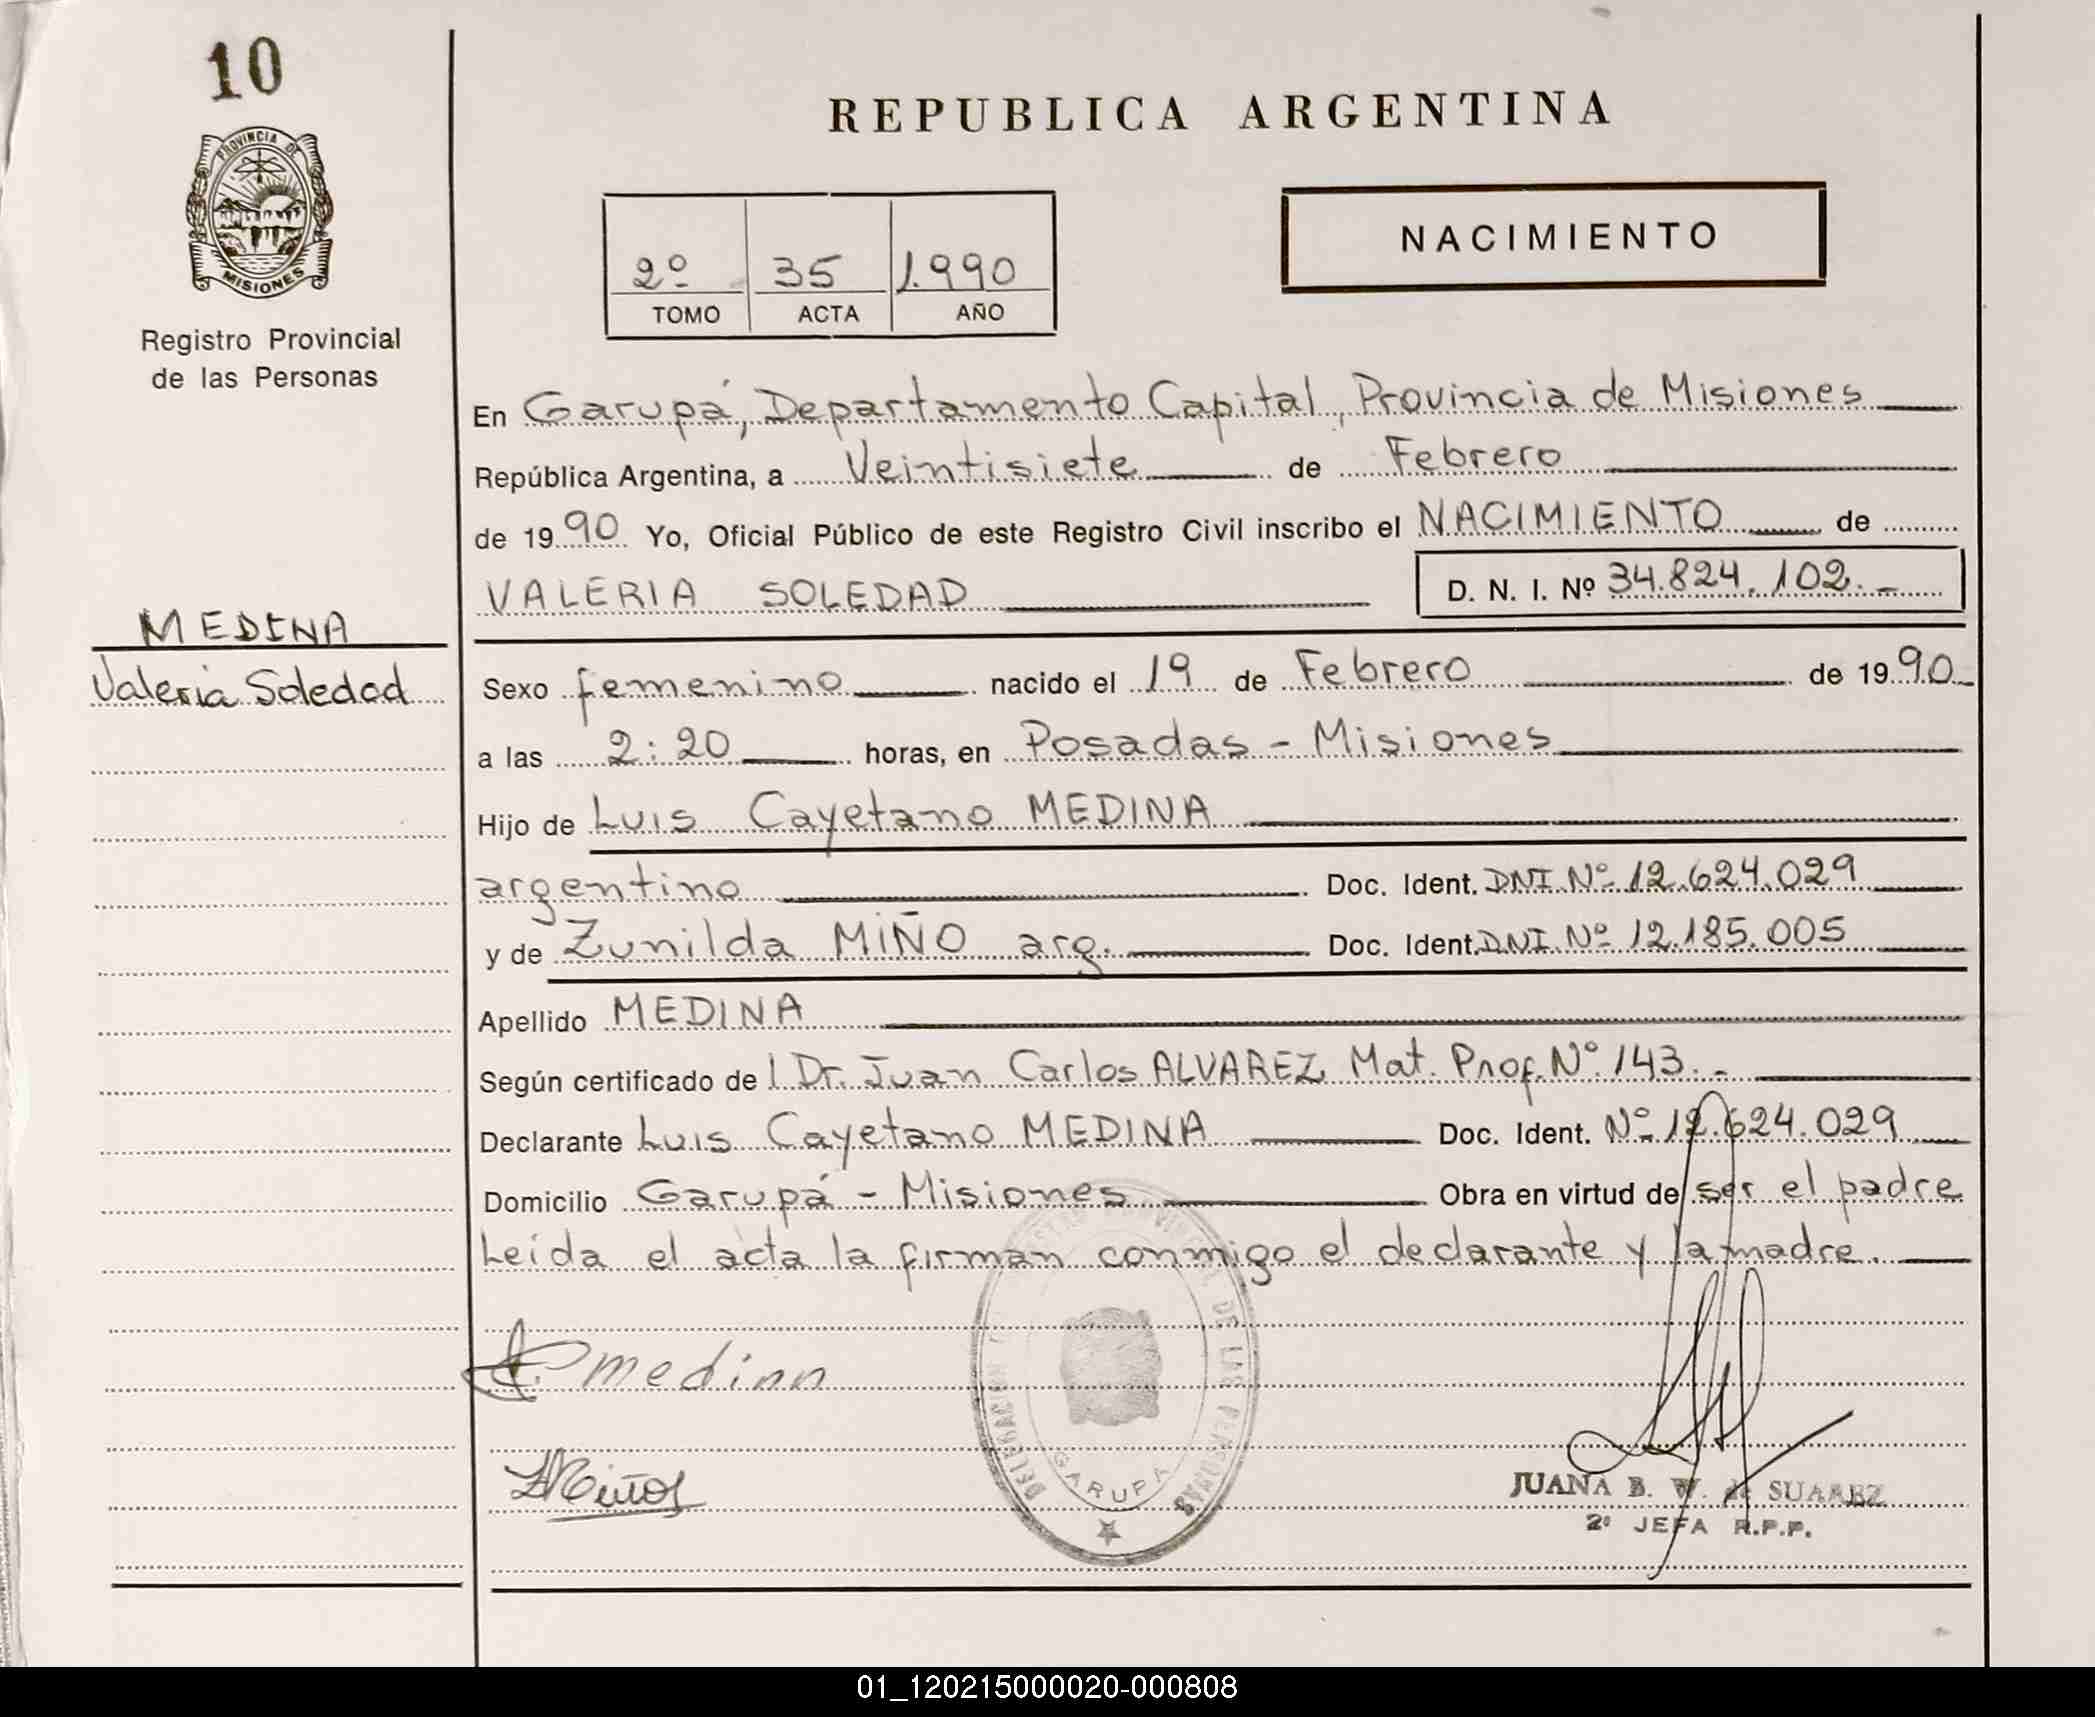 10
PROVINCIA DE
MISIONES
Registro Provincial
de las Personas
MEDINA
Valeria Soledad
REPUBLICA ARGENTINA
2º 35 1.990
TOMO ACTA AÑO
NACIMIENTO
En Garupá, Departamento Capital, Provincia de Misiones
República Argentina, a Veintisiete de Febrero
de 1990 Yo, Oficial Público de este Registro Civil inscribo el NACIMIENTO de
VALERIA SOLEDAD D. N. I. Nº 34.824.102.-
Sexo femenino nacido el 19 de Febrero de 1990
a las 2:20 horas, en Posadas - Misiones
Hijo de Luis Cayetano MEDINA
argentino Doc. Ident. DNI Nº 12.624.029
y de Zunilda MIÑO arg. Doc. Ident. DNI Nº 12.185.005
Apellido MEDINA
Según certificado de l Dr. Juan Carlos ALVAREZ Mat. Prof. Nº 143.-
Declarante Luis Cayetano MEDINA Doc. Ident. Nº 12.624.029
Domicilio Garupá - Misiones Obra en virtud de ser el padre
Leída el acta la firman conmigo el declarante y la madre.
medina
DELEGACION DE LAS PERSONAS
GARUPA
JUANA B. W. de SUAREZ
2º JEFA R.P.P.
01_120215000020-000808